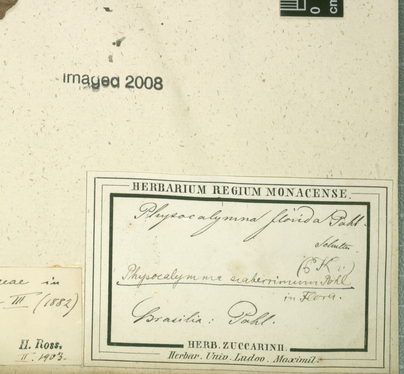 0
cm
imaged 2008
HERBARIUM REGIUM MONACENSE.
Physocalymna florida Pohl.
Schultes
Physocalymma scaberrimum Pohl
in Flora.
Brasilia: Pohl.
HERB. ZUCCARINII.
Herbar. Univ. Ludov. Maximil.
ceae in
III (1882)
H. Ross.
II. 1903.